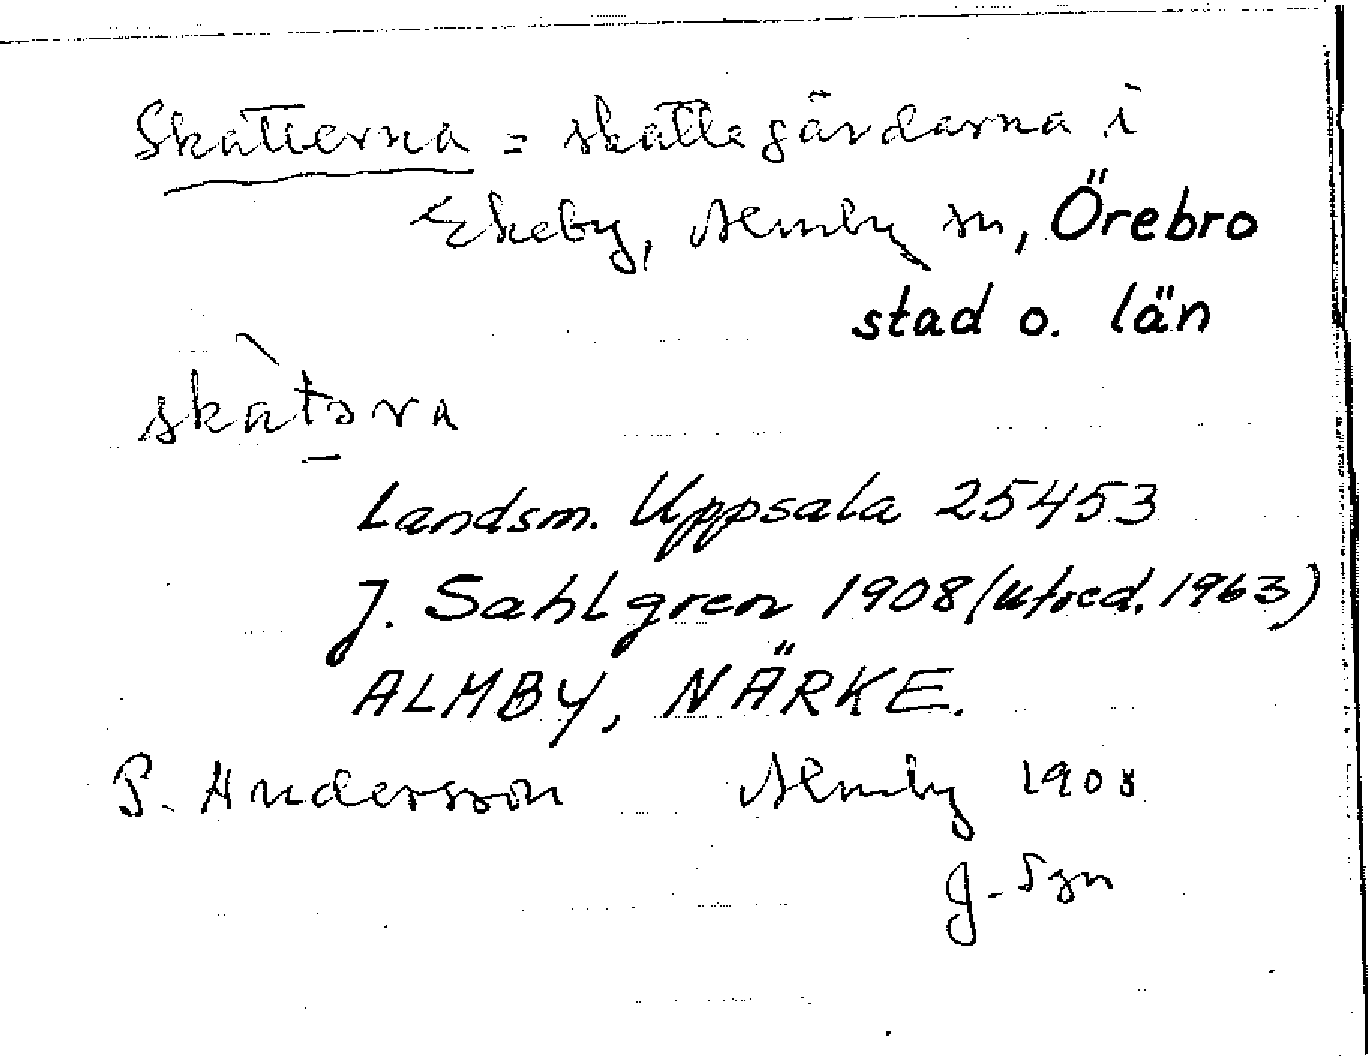 Skatterna = skattegårdarna i
Ekeby, Almby sn, Örebro
stad o. län
skàtəra
Landsm. Uppsala 25453
J. Sahlgren 1908 (utred. 1963)
ALMBY, NÄRKE.
P. Andersson Almby 1908
J. Sgn